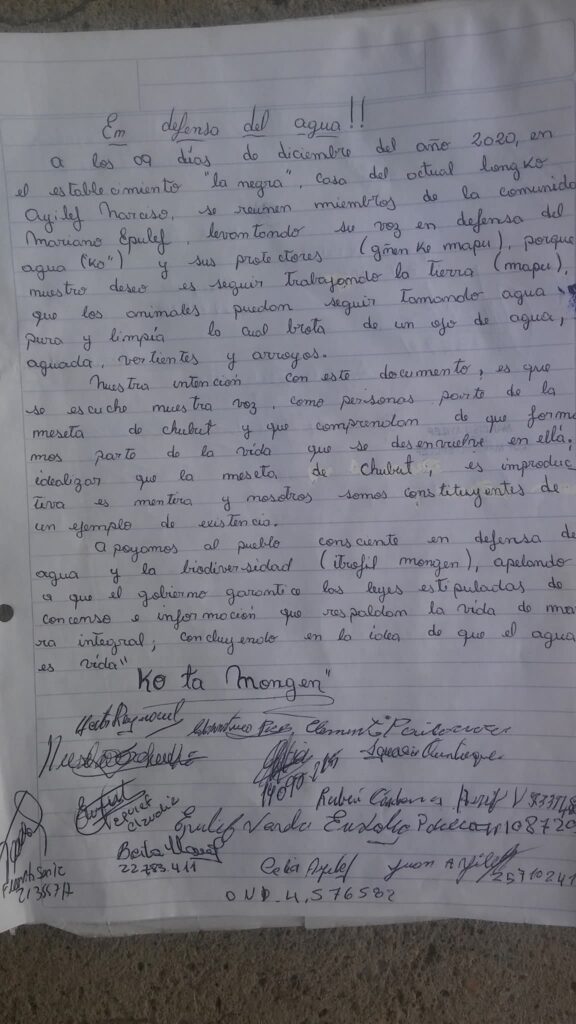 En defensa del agua!!
a los 09 días de diciembre del año 2020, en
el establecimiento "la negra", casa del actual longko
Ayilef Narciso, se reunen miembros de la comunida
Mariano Epulef, levantando su voz en defensa del
agua (ko") y sus protectores (gñen ke mapu), porque
nuestro deseo es seguir trabajando la tierra (mapu),
que los animales puedan seguir tomando agua
pura y limpia lo cual brota de un ojo de agua,
aguada, vertientes y arroyos.
Nuestra intención con este documento, es que
se escuche nuestra voz, como personas parte de la
meseta de chubut y que comprendan de que forma
mos parte de la vida que se desenvuelve en ella;
idealizar que la meseta de Chubut, es improduc
tiva es mentira y nosotros somos constituyentes de
un ejemplo de existencia.
apoyamos al pueblo consciente en defensa de
agua y la biodiversidad (itrofil mongen), apelando
a que el gobierno garantice las leyes estipuladas de
concenso e información que respaldan la vida de mane
ra integral; concluyendo en la idea de que el agua
es vida"
Ko ta Mongen"
Clemente
Ignacio
Rubén Cárdenas
Claudia
Epulef Varda Eudolio
Berta
22.783.411
Celia Ayilef Juan Ayilef
25710241
DNI 4,576582